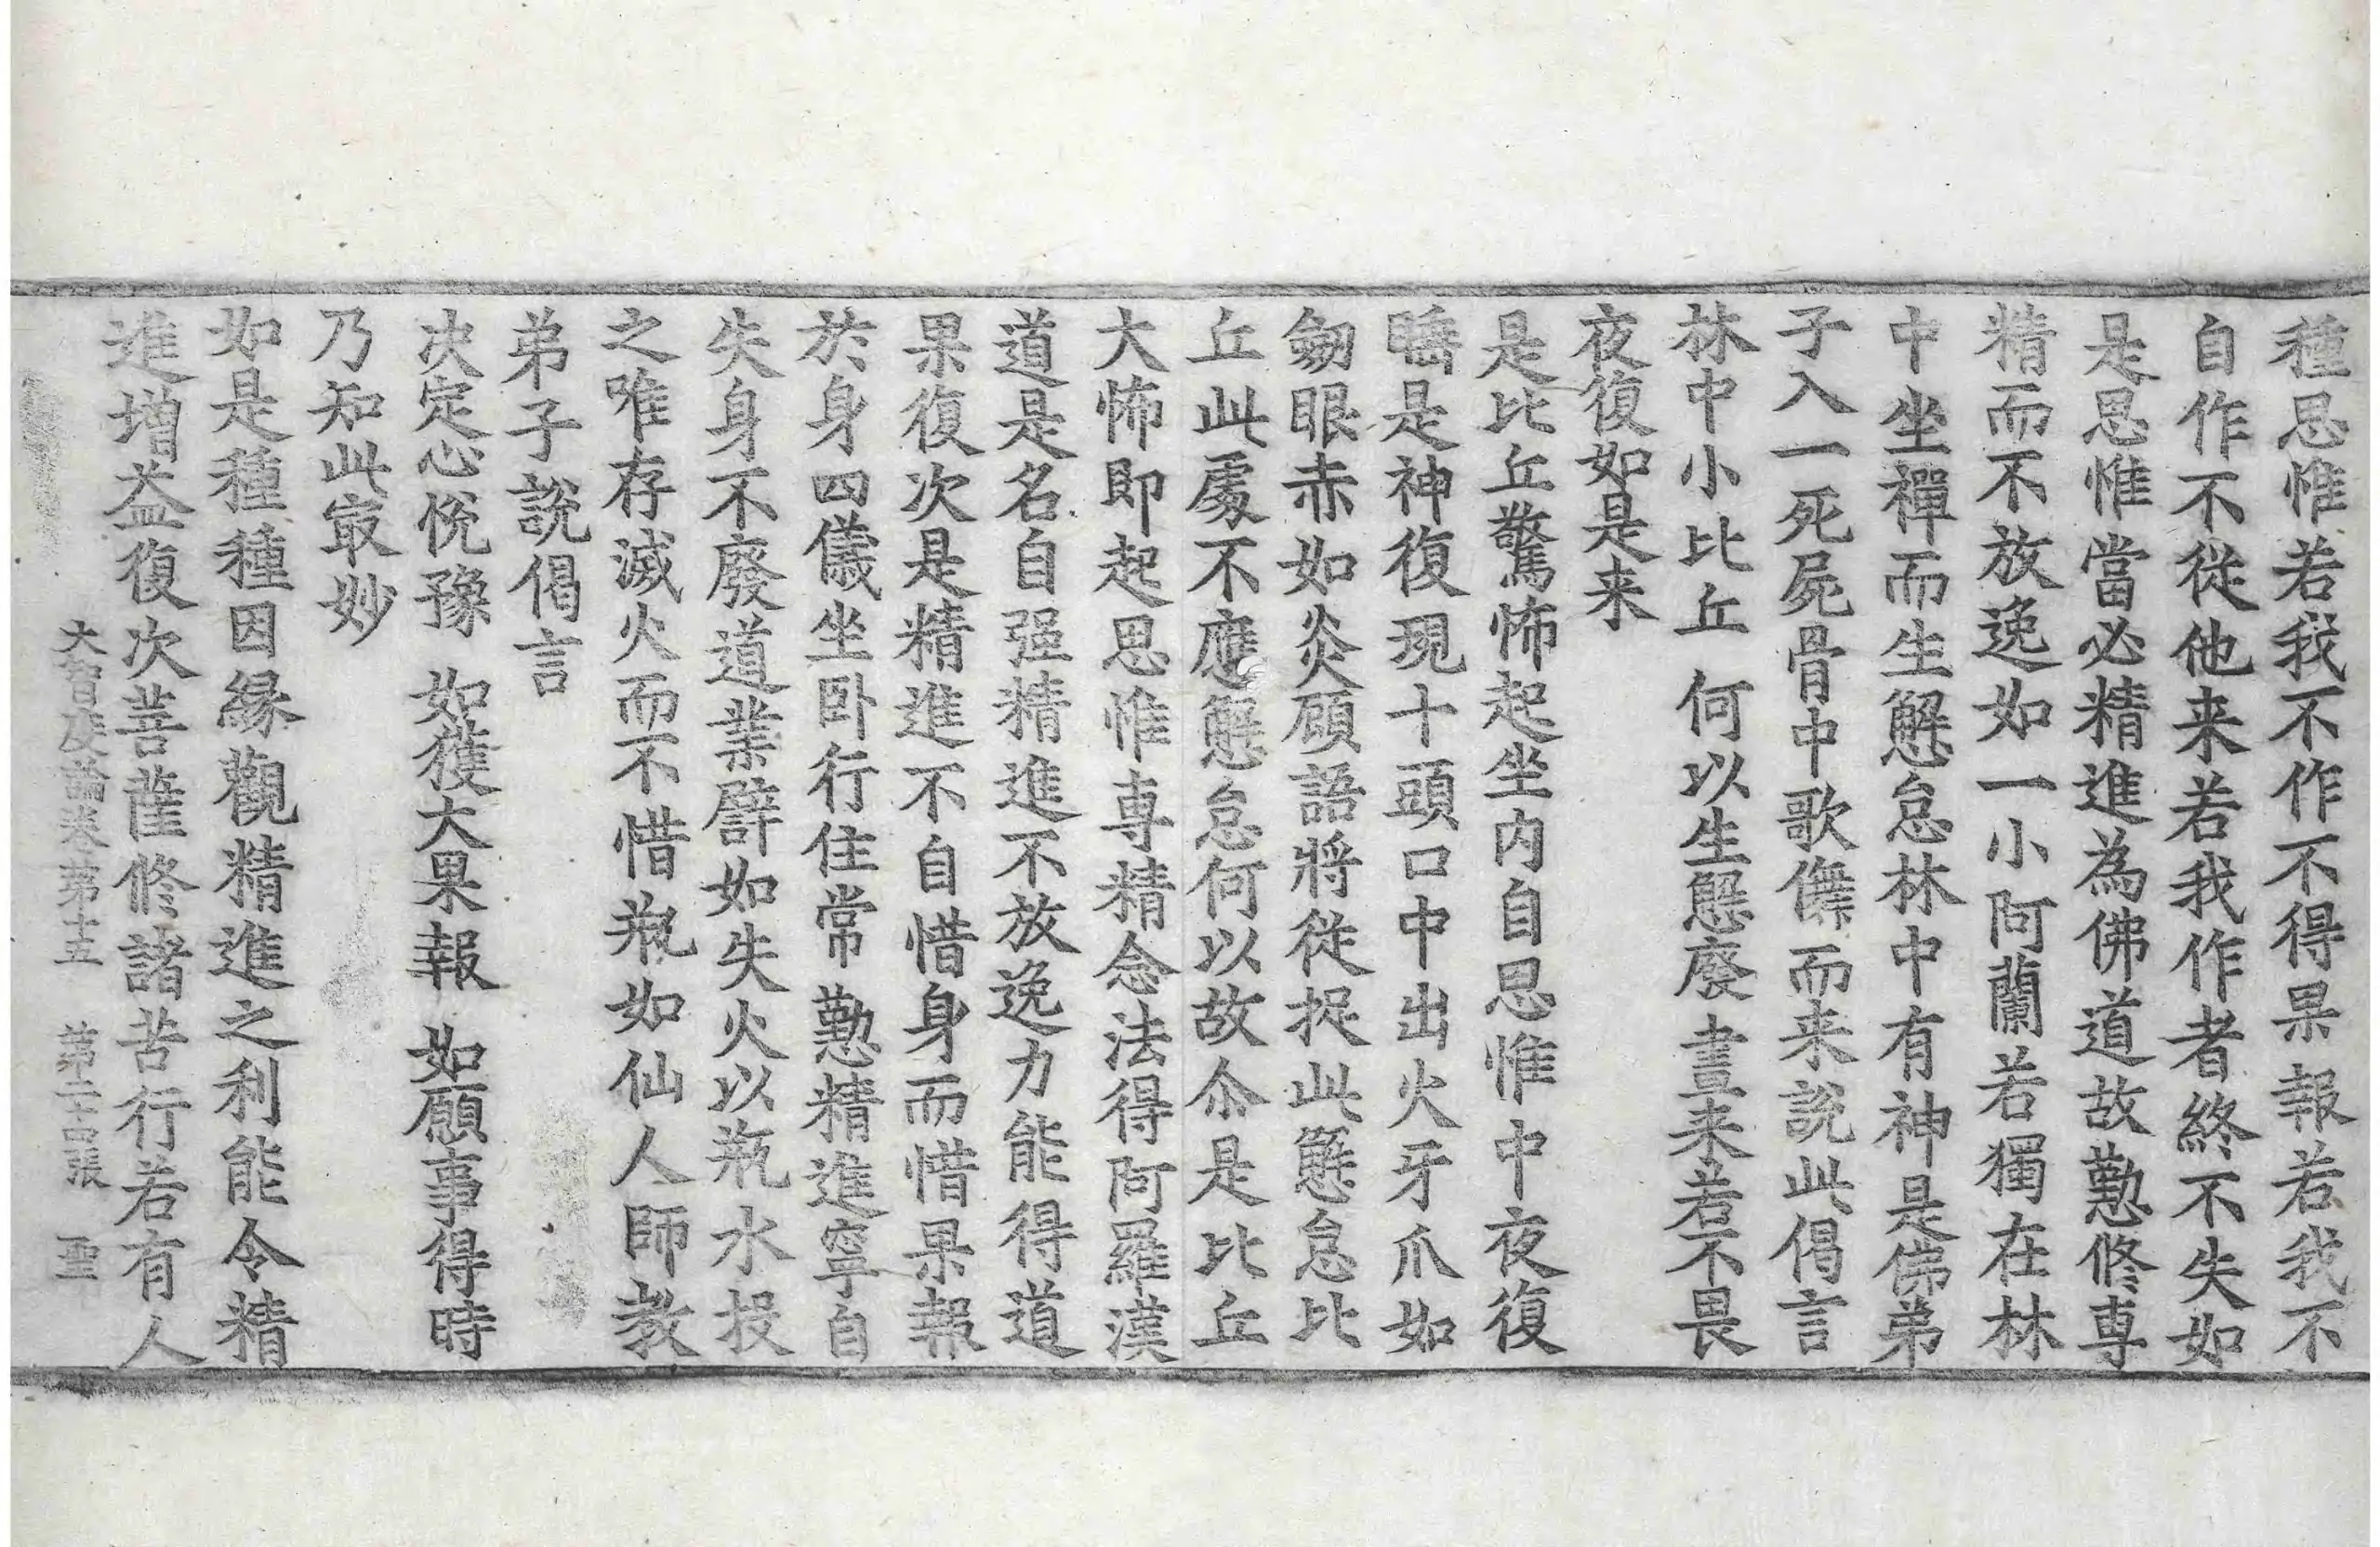 種思惟若我不作不得果報若我不
自作不從他来若我作者終不失如
是思惟當必精進為佛道故懃修専
精而不放逸如一小阿蘭若獨在林
中坐禪而生懈怠林中有神是佛弟
子入一死屍骨中歌儛而来說此偈言
林中小比丘　何以生懈廢　晝来若不畏
夜復如是来
是比丘驚怖起坐内自思惟中夜復
睡是神復現十頭口中出火牙爪如
劒眼赤如炎顧語將從捉此懈怠比
丘此處不應懈怠何以故尒是比丘
大怖即起思惟専精念法得阿羅漢
道是名自强精進不放逸力能得道
果復次是精進不自惜身而惜果報
於身四儀坐卧行住常懃精進寧自
失身不廢道業譬如失火以瓶水投
之唯存滅火而不惜瓶如仙人師教
弟子說偈言
決定心悅豫　如獲大果報　如願事得時
乃知此㝡妙
如是種種因緣觀精進之利能令精
進增益復次菩薩修諸苦行若有人
大智度論卷第十五　第二十四張　聖